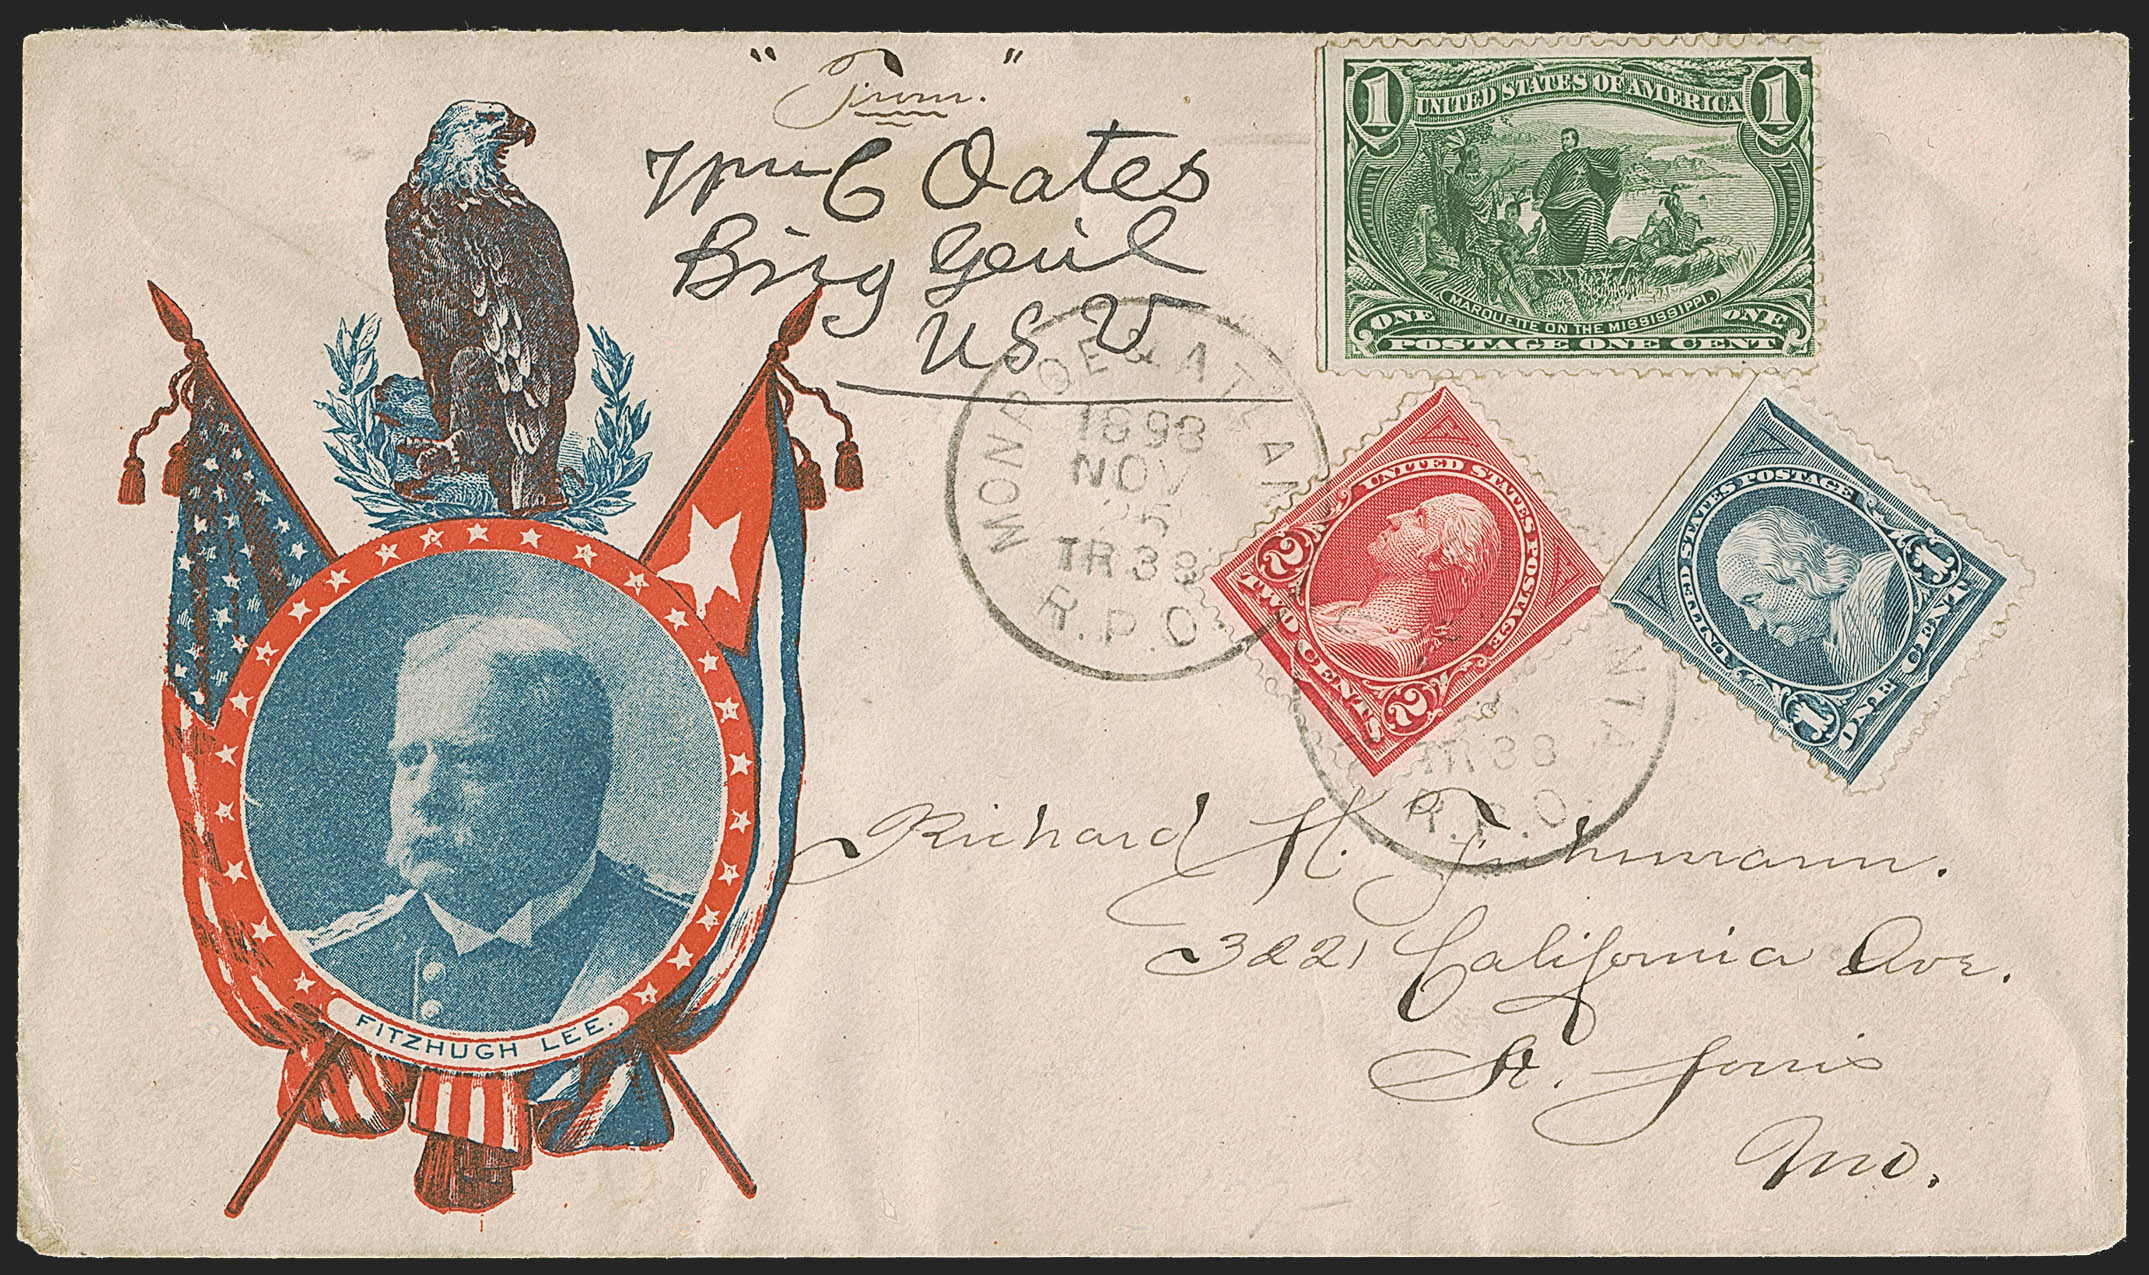 "From."
Wm C Oates
Brig Genl
US V
1
UNITED STATES OF AMERICA
1
MARQUETTE ON THE MISSISSIPPI.
ONE
ONE
POSTAGE ONE CENT
MONROE & ATLAN
1898
NOV
TR 38
R.P.O.
UNITED STATES POSTAGE
2
TWO CENTS
2
UNITED STATES POSTAGE
1
ONE CENT
1
NTA
TR 38
R.P.O.
FITZHUGH LEE.
Richard H.
3221 California Ave.
St. Louis
Mo.